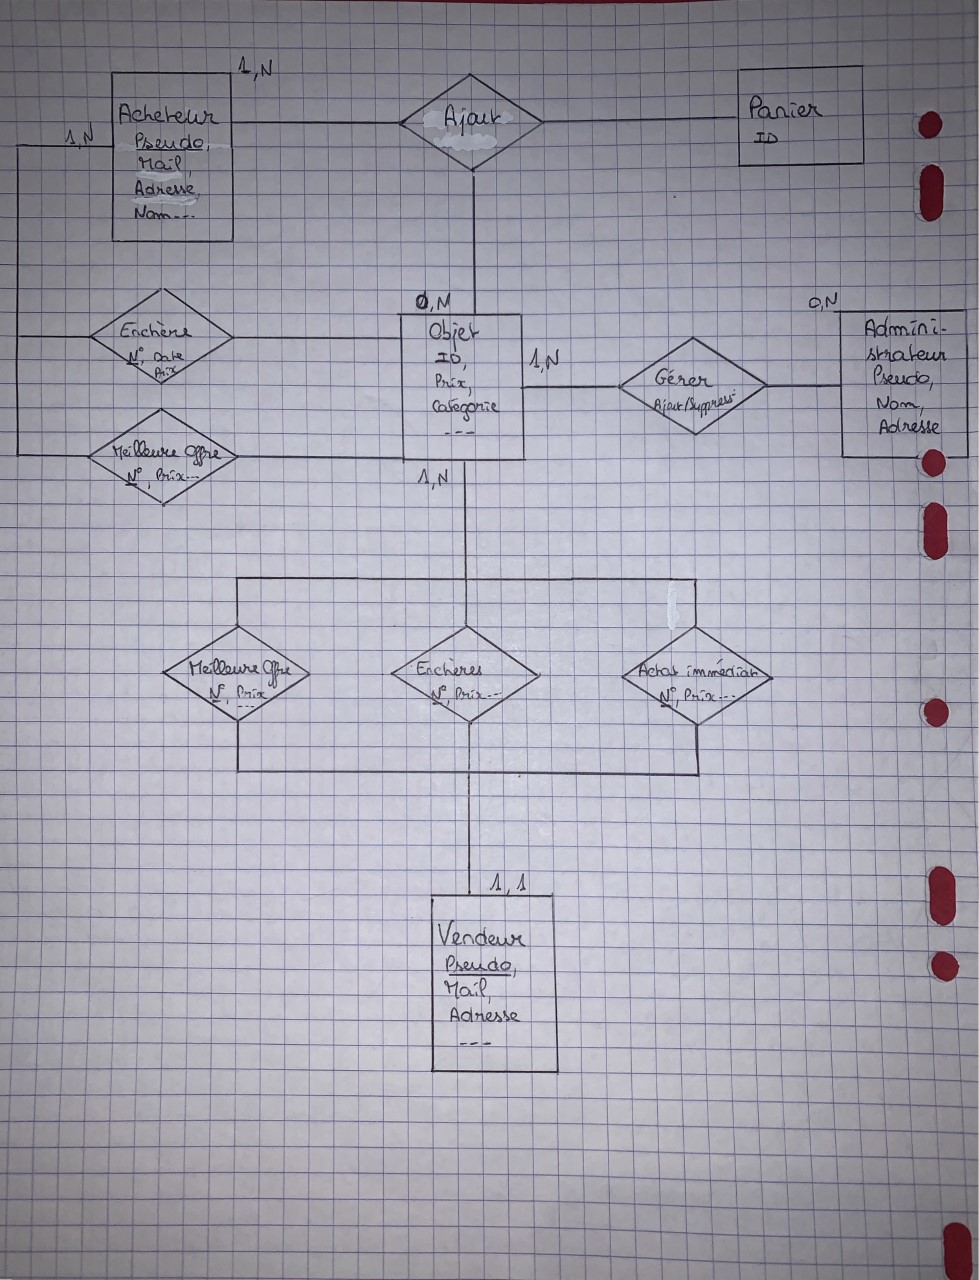 1,N
Acheteur
Pseudo,
Mail,
Adresse,
Nom---
1,N
Ajout
Panier
ID
Enchère
N°, Date
Prix
Meilleure Offre
N°, Prix---
0,N
Objet
ID,
Prix,
Catégorie
---
1,N
1,N
Gérer
Ajout/Suppress°
0,N
Admini-
strateur
Pseudo,
Nom,
Adresse
Meilleure Offre
N°, Prix
---
Enchères
N°, Prix---
Achat immédiat
N°, Prix---
1,1
Vendeur
Pseudo,
Mail,
Adresse
---